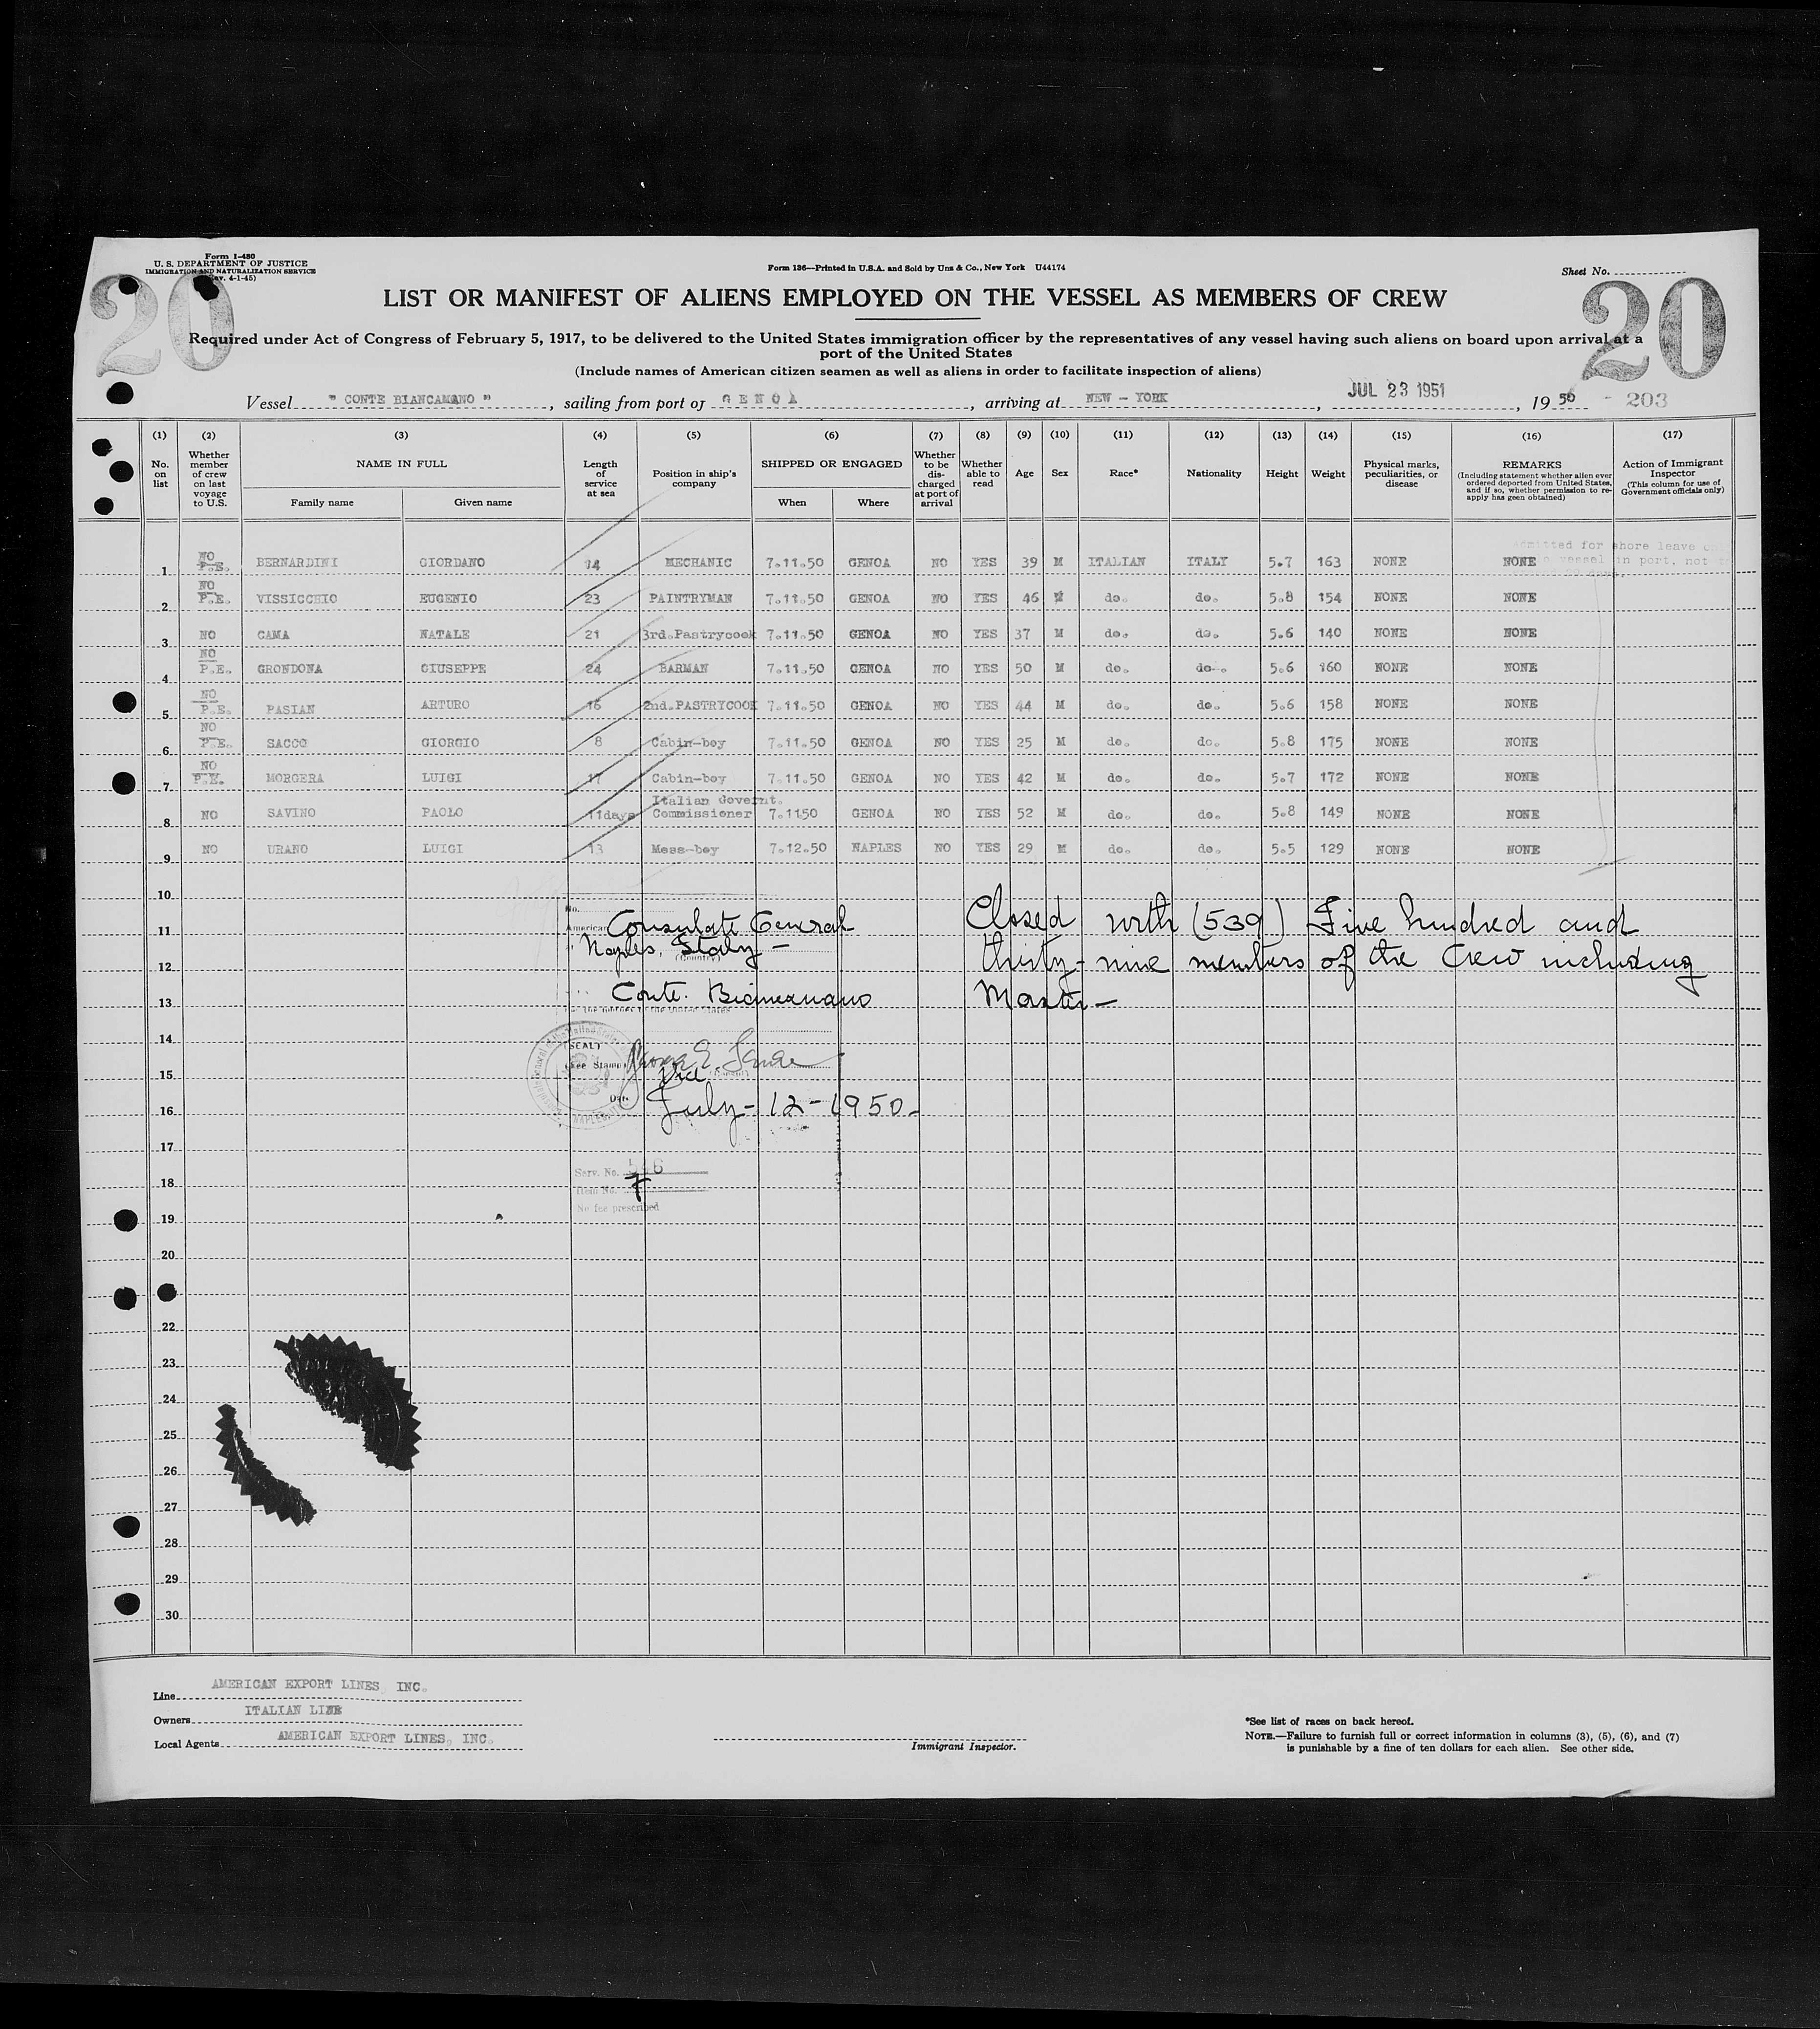 Form I-480
U. S. DEPARTMENT OF JUSTICE
IMMIGRATION AND NATURALIZATION SERVICE
(Rev. 4-1-45)
Form 136—Printed in U.S.A. and Sold by Unz & Co., New York U44174
Sheet No.
20
20
LIST OR MANIFEST OF ALIENS EMPLOYED ON THE VESSEL AS MEMBERS OF CREW
Required under Act of Congress of February 5, 1917, to be delivered to the United States immigration officer by the representatives of any vessel having such aliens on board upon arrival at a
port of the United States
(Include names of American citizen seamen as well as aliens in order to facilitate inspection of aliens)
Vessel " CONTE BIANCAMANO " , sailing from port of GENOA , arriving at NEW - YORK , JUL 23 1951 , 19 50 - 203
(1) (2) (3) (4) (5) (6) (7) (8) (9) (10) (11) (12) (13) (14) (15) (16) (17)
No. on list
Whether member of crew on last voyage to U.S.
NAME IN FULL
Family name
Given name
Length of service at sea
Position in ship's company
SHIPPED OR ENGAGED
When
Where
Whether to be discharged at port of arrival
Whether able to read
Age
Sex
Race*
Nationality
Height
Weight
Physical marks, peculiarities, or disease
REMARKS
(Including statement whether alien ever ordered deported from United States, and if so, whether permission to re-apply has geen obtained)
Action of Immigrant Inspector
(This column for use of Government officials only)
Admitted for shore leave
vessel in port, not
1 NO P.E. BERNARDINI GIORDANO 14 MECHANIC 7.11.50 GENOA NO YES 39 M ITALIAN ITALY 5.7 163 NONE NONE
2 NO P.E. VISSICCHIO EUGENIO 23 PAINTRYMAN 7.11.50 GENOA NO YES 46 M do. do. 5.8 154 NONE NONE
3 NO CAMA NATALE 21 3rd.Pastrycook 7.11.50 GENOA NO YES 37 M do. do. 5.6 140 NONE NONE
4 NO P.E. GRONDONA GIUSEPPE 24 BARMAN 7.11.50 GENOA NO YES 50 M do. do. 5.6 160 NONE NONE
5 NO P.E. PASIAN ARTURO 16 2nd.PASTRYCOOK 7.11.50 GENOA NO YES 44 M do. do. 5.6 158 NONE NONE
6 NO P.E. SACCO GIORGIO 8 Cabin-boy 7.11.50 GENOA NO YES 25 M do. do. 5.8 175 NONE NONE
7 NO P.E. MORGERA LUIGI 17 Cabin-boy 7.11.50 GENOA NO YES 42 M do. do. 5.7 172 NONE NONE
8 NO SAVINO PAOLO 11days Italian Governt. Commissioner 7.1150 GENOA NO YES 52 M do. do. 5.8 149 NONE NONE
9 NO URANO LUIGI 13 Mess-boy 7.12.50 NAPLES NO YES 29 M do. do. 5.5 129 NONE NONE
10
No.
11 American Consulate General Closed with (539) Five hundred and
Naples, Italy -
(Country)
12 thirty-nine members of the Crew including
13 Conte. Biancamano Master -
14
(SEAL)
15 (Fee Stamp)
Vice
Date
16 July - 12 - 1950 -
17
Serv. No.
18
Item No. 7
19 No fee prescribed
20
22
23
24
25
26
27
28
29
30
Line AMERICAN EXPORT LINES, INC.
Owners ITALIAN LINE
Local Agents AMERICAN EXPORT LINES, INC.
Immigrant Inspector.
*See list of races on back hereof.
NOTE.—Failure to furnish full or correct information in columns (3), (5), (6), and (7)
is punishable by a fine of ten dollars for each alien. See other side.